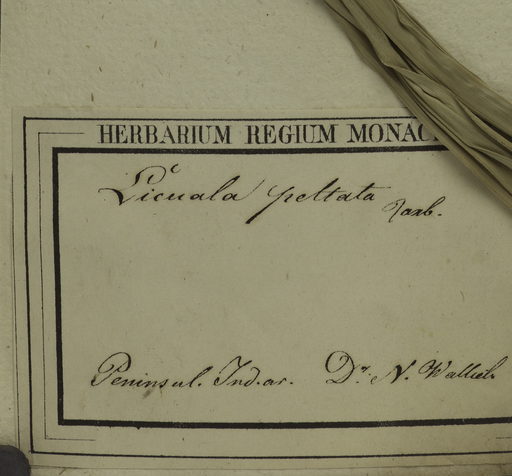 HERBARIUM REGIUM MONAC
Licuala peltata Roxb.
Peninsul. Ind. or. Dr. N. Wallich.